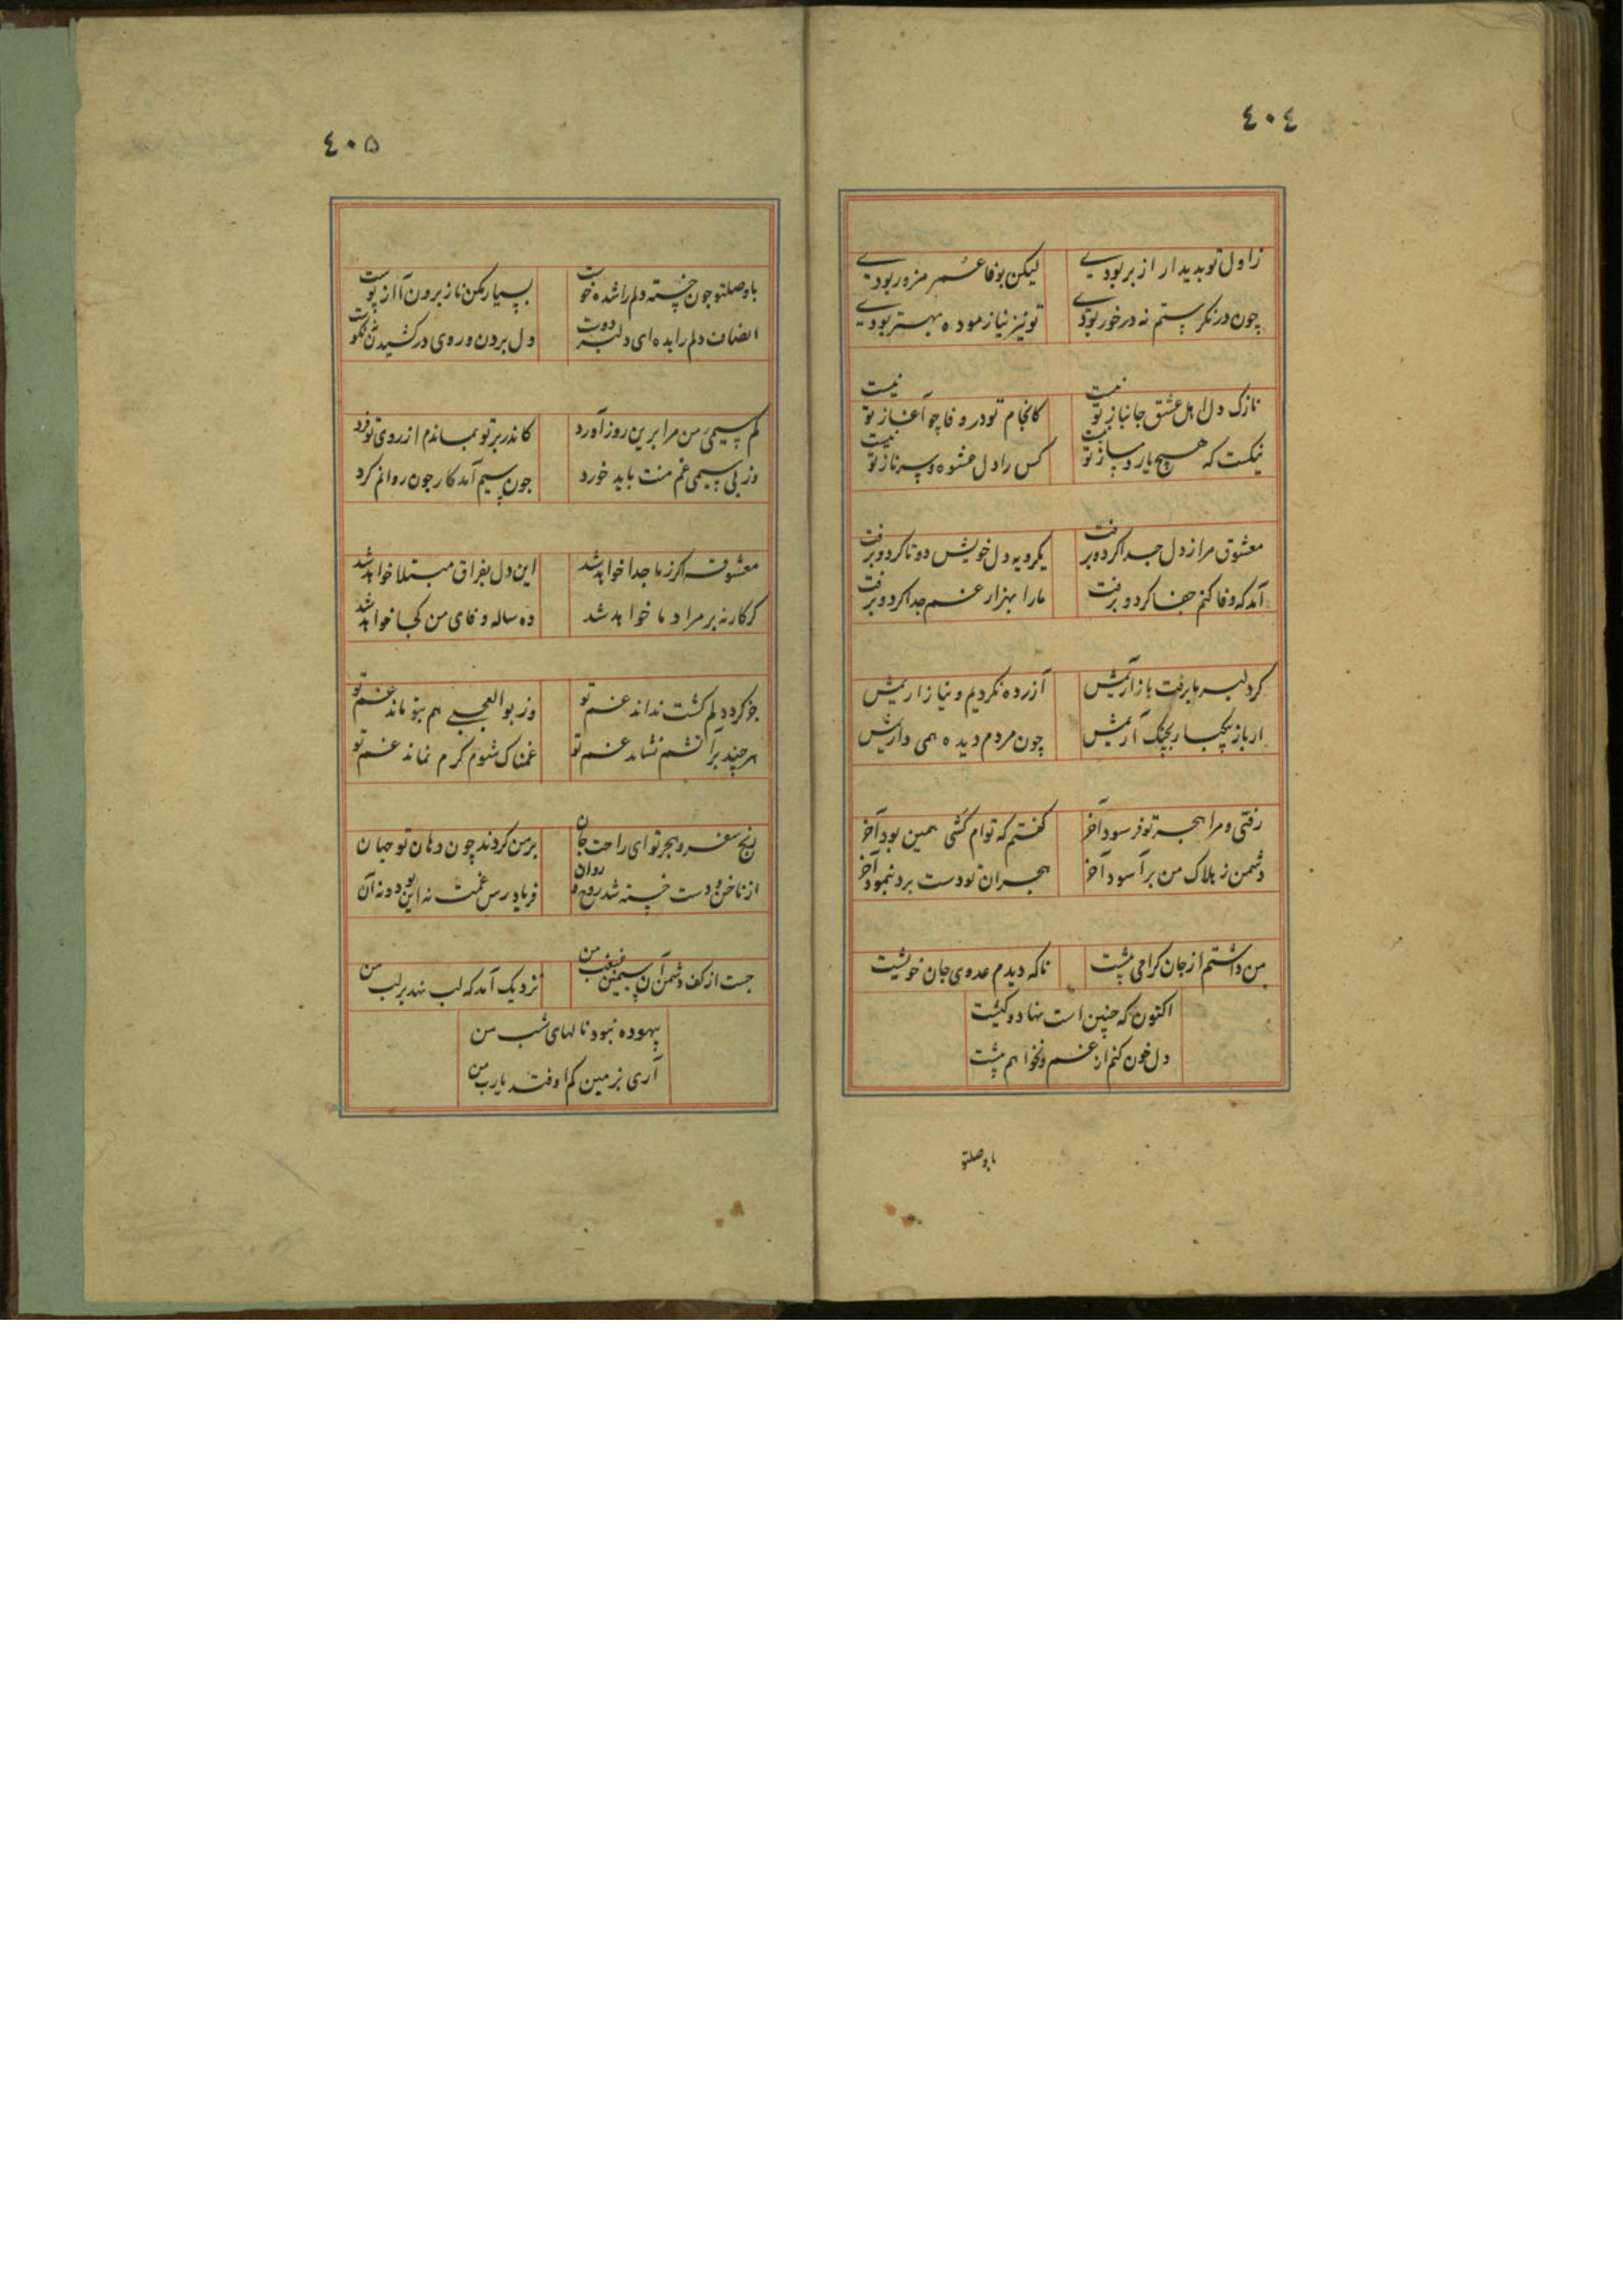 ٤٠٤
ز اول تو بدیدار از بر بودی لیکن بوفا عمر مزور بودی
چون در نکرستم نه در خور بودی تو نیز نیازموده بهتر بودی
نازک دل اهل عشق جانباز تو نیست کانجام تو در وفا چو آغاز تو نیست
نیکست که هیچ یار دمساز تو نیست کس را دل عشوه و سر ناز تو نیست
معشوق مرا ز دل جدا کرد و برفت یکرویه دل خویش دو تا کرد و برفت
آمد که وفا کنم جفا کرد و برفت ما را بهزار غم جدا کرد و برفت
کر دلبر ما برفت باز آریمش آزرده نکردیم و نیازاریمش
ار باز بچنک آریمش چون مردم دیده همی داریمش
رفتی و مرا هجر تو فرسود آخر کفتم که توام کشی همین بود آخر
دشمن ز هلاک من بر آسود آخر هجران تو دست برد بنمود آخر
من داشتم از جان کرامی پیشت ناکه دیدم عدوی جان خویشت
اکنون که چنین است نهاد و کیشت
دل خون کنم از غم و نخواهم پیشت
با وصلتو
٤٠۵
با وصلتو چون خسته دلم را شده خوست بسیار مکن ناز برون آ از پوست
انصاف دلم را بده ای دلبر دوست دل بردن و روی در کشیدن نه نکوست
کم سیمی من مرا برین روز آورد کاندر بر تو بماندم از روی تو فرد
وز بی سیمی غم منت باید خورد چون سیم آمد کار چون زر وانم کرد
معشوقه اکر ز ما جدا خواهد شد این دل بفراق مبتلا خواهد شد
کر کار نه بر مراد ما خواهد شد ده ساله وفای من کجا خواهد شد
جز کرد دلم کشت نداند غم تو وز بوالعجبی هم بتو ماند غم تو
هر چند بر آتشم نشاند غم تو غمناک شوم کرم نماند غم تو
رنج سفر و هجر تو ای راحت جان بر من کردند چون دهان تو جهان
از ناخن و دست خسته شد روی و روان فریاد رس غمت نه این بود نه آن
جست از کف دشمن آن سیمین غبغب من نزدیک آمد که لب نهد بر لب من
بیهوده نبود نالهای شب من
آری بزمین کم اوفتد یارب من